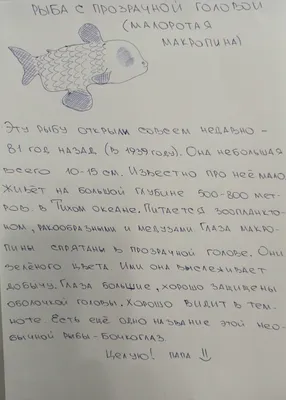 РЫБА С ПРОЗРАЧНОЙ ГОЛОВОЙ
(МАЛОРОТАЯ
МАКРОПИНА)
ЭТУ РЫБУ ОТКРЫЛИ СОВСЕМ НЕДАВНО –
81 ГОД НАЗАД (В 1939 ГОДУ). ОНА НЕБОЛЬШАЯ
ВСЕГО 10-15 СМ. ИЗВЕСТНО ПРО НЕЁ МАЛО
ЖИВЁТ НА БОЛЬШОЙ ГЛУБИНЕ 500-800 МЕТ-
РОВ. В ТИХОМ ОКЕАНЕ. ПИТАЕТСЯ ЗООПЛАНКТО-
НОМ, РАКООБРАЗНЫМИ И МЕДУЗАМИ. ГЛАЗА МАКРО-
ПИНЫ СПРЯТАНЫ В ПРОЗРАЧНОЙ ГОЛОВЕ. ОНИ
ЗЕЛЁНОГО ЦВЕТА. ИМИ ОНА ВЫСЛЕЖИВАЕТ
ДОБЫЧУ. ГЛАЗА БОЛЬШИЕ, ХОРОШО ЗАЩИЩЕНЫ
ОБОЛОЧКОЙ ГОЛОВЫ. ХОРОШО ВИДИТ В ТЕМ-
НОТЕ. ЕСТЬ ЕЩЁ ОДНО НАЗВАНИЕ ЭТОЙ НЕО-
БЫЧНОЙ РЫБЫ - БОЧКОГЛАЗ.
ЦЕЛУЮ! ПАПА